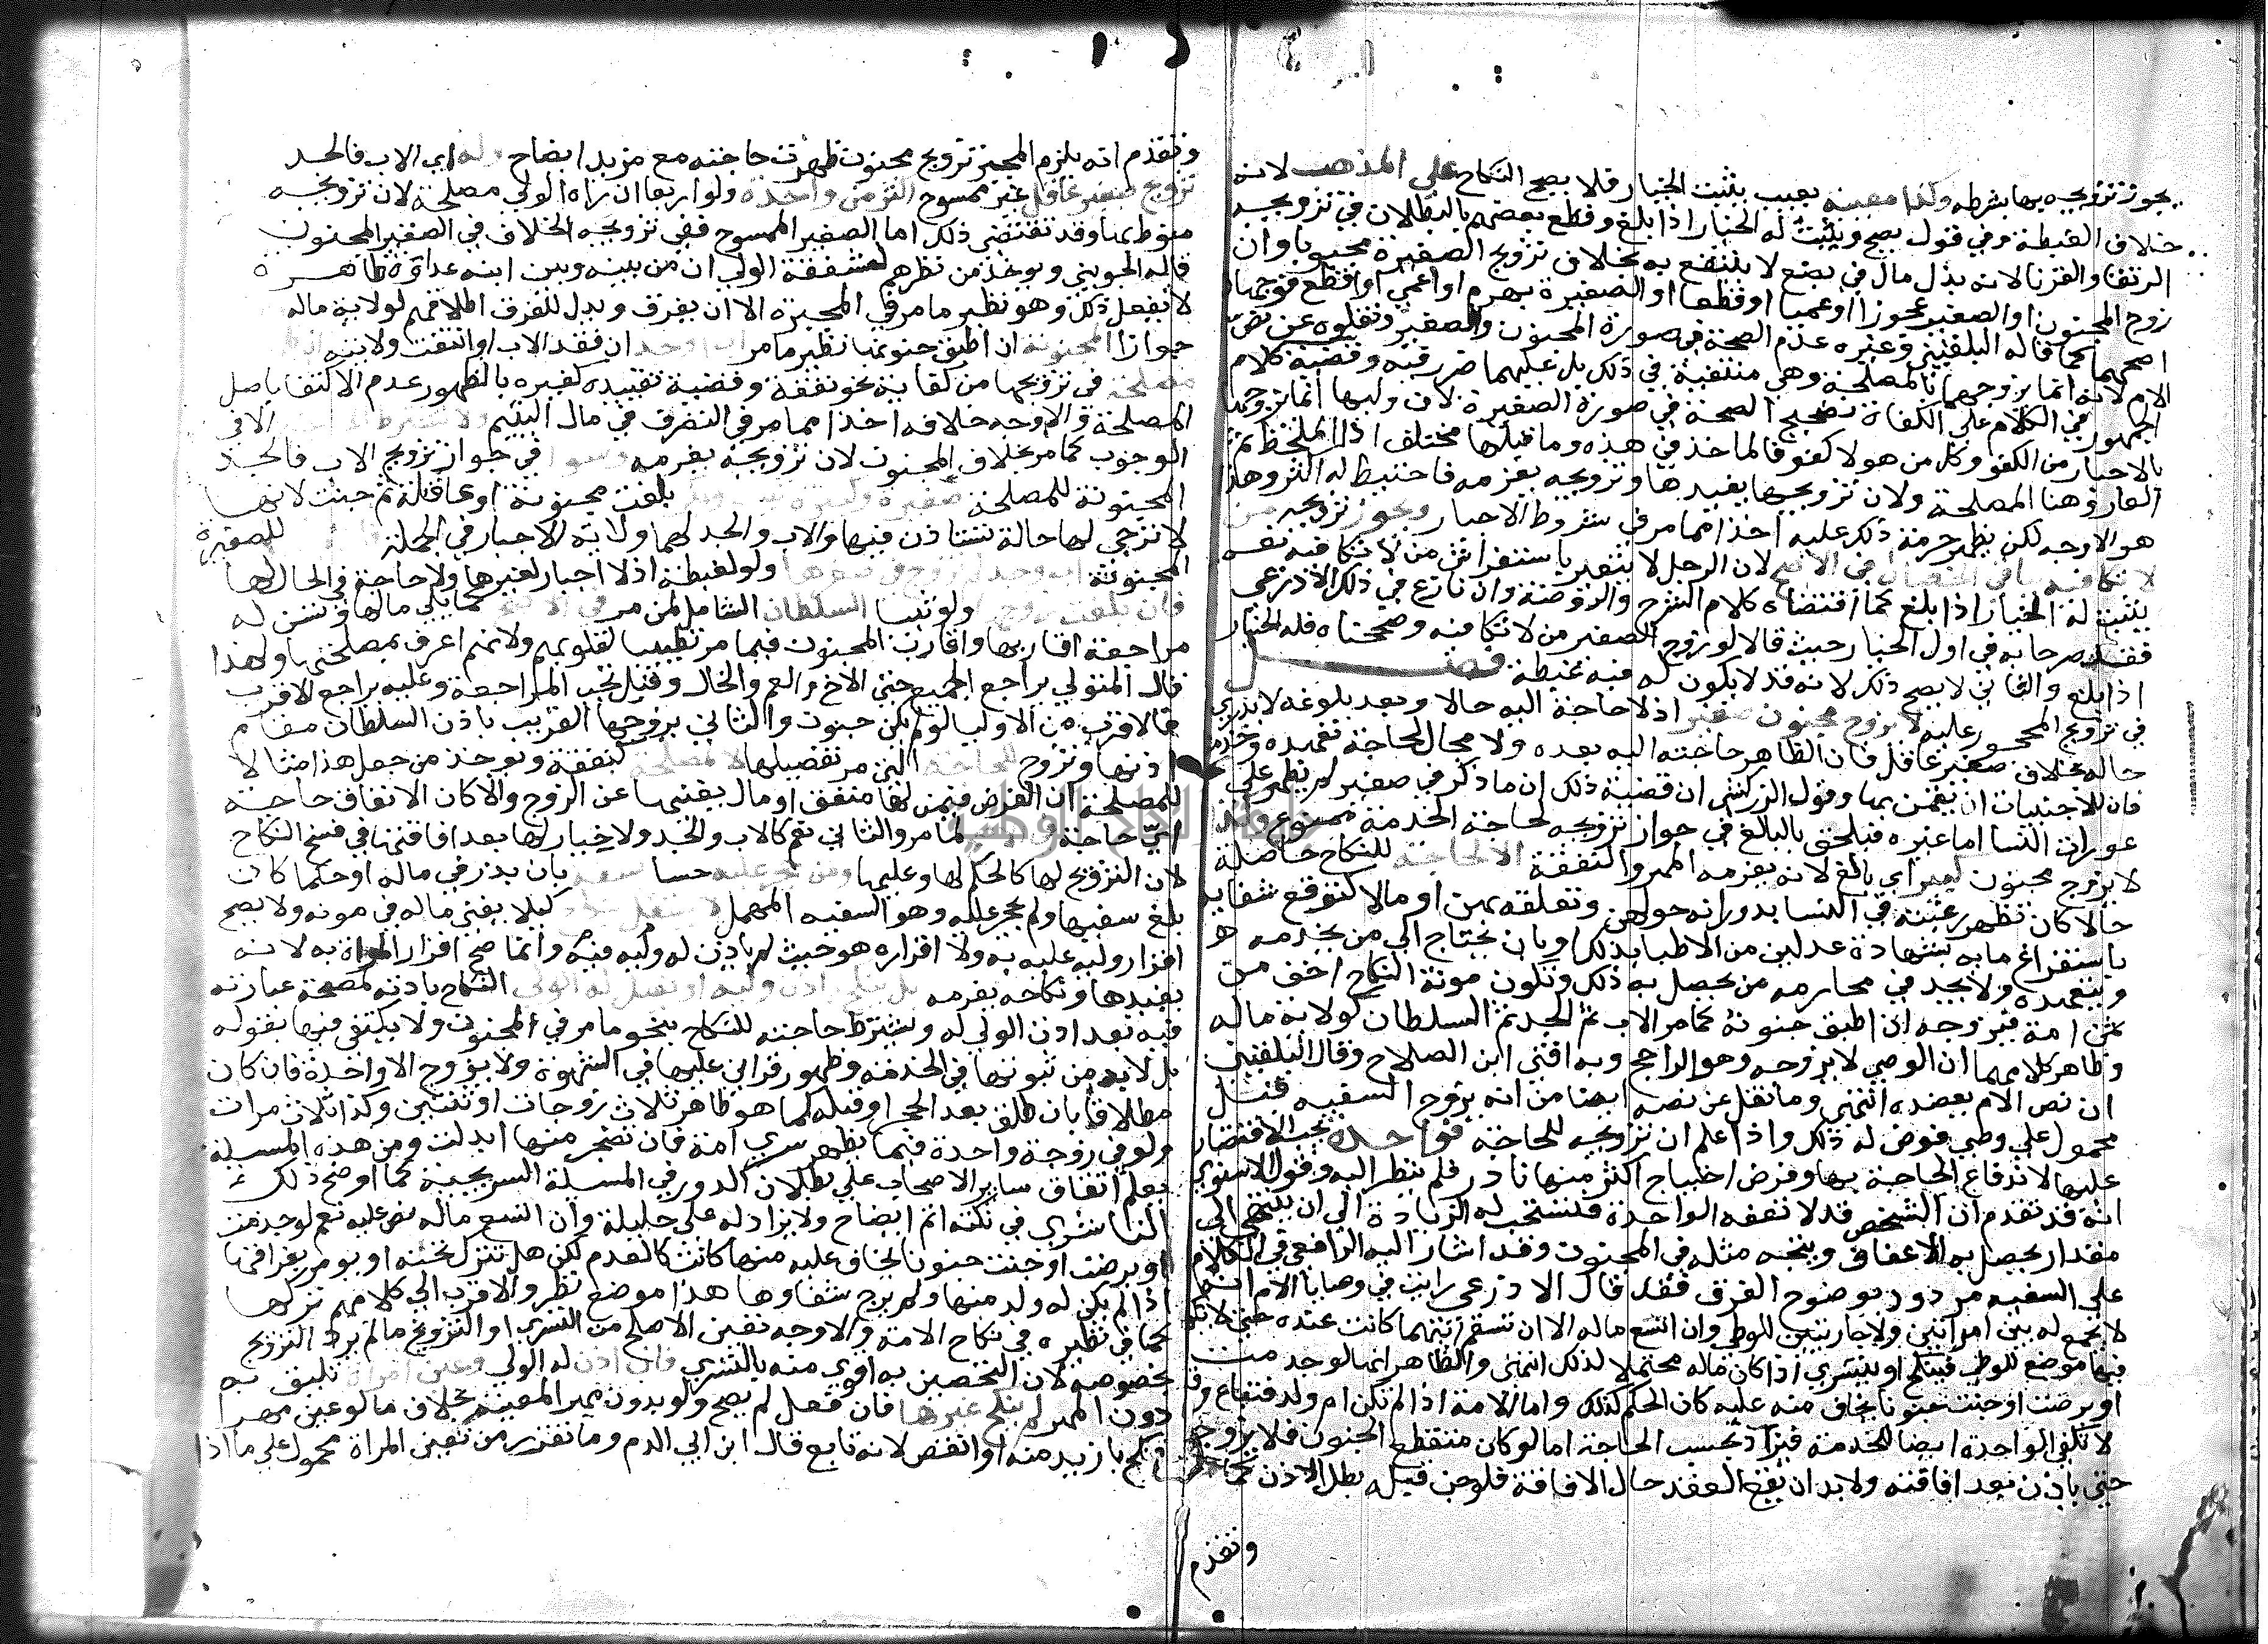 يجوز تزويجه بها بشرطه وكذا معيبة بعيب يثبت الخيار فلا يصح النكاح على المذهب لانه
خلاف الغبطة وفي قول يصح ويثبت له الخيار اذا بلغ وقطع بعضهم بالبطلان في تزويجه
الرتقا والقرنا لانه بذل مال في بضع لا ينتفع به بخلاف تزويج الصغيرة مجبوبا وان
زوج المجنون او الصغير عجوزا او عميا او قطعا او الصغيرة بهرم او اعمى او اقطع فوجهان
اصحهما كما قاله البلقيني وغيره عدم الصحة في صورة المجنون والصغير ونقلوه عن نص
الام لانه انما يزوجهما بالمصلحة وهي منتفية في ذلك بل عليهما ضرر فيه وقضية كلام
الجمهور في الكلام على الكفاة تصحيح الصحة في صورة الصغيرة لان وليها انما يزوجها
بالاجبار من الكفو وكل من هولا كفو فالماخذ في هذه وما قبلها مختلف اذ الملحظ ثم
العار وهنا المصلحة ولان تزويجها يفيدها وتزويجه يغرمه فاحتيط له اكثر وهذا
هو الاوجه لكن يظهر حرمة ذلك عليه اخذا مما مر في شروط الاجبار ويجوز تزويجه من
لا تكافيه بباقي الخصال في الاصح لان الرجل لا يتعير باستفراش من لا تكافيه نعم
يثبت له الخيار اذا بلغ كما اقتضاه كلام الشرح والروضة وان نازع في ذلك الاذرعي
فقد صرحا به في اول الخيار حيث قالا لو زوج الصغير من لا تكافيه وصححناه فله الخيار
اذا بلغ والثاني لا يصح ذلك لانه قد لا يكون له فيه غبطة فصل
في تزويج المحجور عليه لا يزوج مجنون صغير اذ لا حاجة اليه حالا وبعد بلوغه لا ندري
حاله بخلاف صغير عاقل فان الظاهر حاجته اليه بعده ولا مجال لحاجة تعهده وخدمته
فان للاجنبيات ان يقمن بها وقول الزركشي ان قضية ذلك ان ما ذكر في صغير لم يظهر على
عورات النسا اما غيره فيلحق بالبالغ في جواز تزويجه لحاجة الخدمة ممنوع وكذا
لا يزوج مجنون كبير اي بالغ لانه يغرمه المهر والنفقة الا لحاجة للنكاح حاصلة
حالا كان تظهر رغبته في النسا بدورانه حولهن وتعلقه بهن او مالا كتوقع شفايه
باستفراغ مايه بشهادة عدلين من الاطبا بذلك او بان يحتاج الى من يخدمه
ويتعهده ولا يجد في محارمه من يحصل به ذلك وتكون مونة النكاح اخف من
ثمن امة فيزوجه ان اطبق جنونه كما مر الاب ثم الجد ثم السلطان كولاية ماله
وظاهر كلامهما ان الوصي لا يزوجه وهو الراجح وبه افتى ابن الصلاح وقال البلقيني
ان نص الام يعضده انتهى وما نقل عن نصه ايضا من انه يزوج السفيه فنقل
محمول على وصي فوض له ذلك واذا علم ان تزويجه للحاجة فواحدة يجب الاقتصار
عليها لاندفاع الحاجة بها وفرض احتياج اكثر منها نادر فلم ينظر اليه وقول الاسنوي
انه قد تقدم ان الشخص قد لا تعفه الواحدة فتستحب له الزيادة الى ان ينتهي الى
مقدار يحصل به الاعفاف ويتجه مثله في المجنون وقد اشار اليه الرافعي في الكلام
على السفيه مردود بوضوح الفرق فقد قال الاذرعي رايت في وصايا الام انه
لا يجمع له بين امراتين ولا جاريتين للوطي وان اتسع ماله الا ان تسقم ايتهما كانت عنده حتى لا يكون
فيها موضع للوطي فينكح او يتسرى اذا كان ماله محتملا لذلك انتهى والظاهر انها لو جذمت
او برصت او جنت جنونا يخاف منه عليه كان الحكم كذلك واما الامة اذا لم تكن ام ولد فتباع وقد
لا تكفي الواحدة ايضا للخدمة فيزاد بحسب الحاجة اما لو كان متقطع الجنون فلا يزوج
حتى ياذن بعد افاقته ولا بد ان يقع العقد حال الافاقة فلو جن قبله بطل الاذن كما
وتقدم
وتقدم انه يلزم المجبر تزويج مجنون ظهرت حاجته مع مزيد ايضاح وله اي الاب فالجد
تزويج صغير عاقل غير ممسوح اكثر من واحدة ولو اربعا ان راه الولي مصلحة لان تزويجه
منوط بها وقد تقتضي ذلك اما الصغير الممسوح ففي تزويجه الخلاف في الصغير المجنون
قاله الجويني ويوخذ من نظرهم لشفقة الولي ان من بينه وبين ابنه عداوة ظاهرة
لا يفعل ذلك وهو نظير ما مر في المجبرة الا ان يفرق ويدل للفرق اطلاقهم لولاية ماله
جوازا المجنونة ان اطبق جنونها نظير ما مر اب او جد ان فقد الاب او انتفت ولايته
مصلحة في تزويجها من كفاية نحو نفقة وقضية تقييده كغيره بالظهور عدم الاكتفا باصل
المصلحة والاوجه خلافه اخذا مما مر في التصرف في مال اليتيم ولا تشترط الحاجة الا في
الوجوب كما مر بخلاف المجنون لان تزويجه يغرمه وسوا في جواز تزويج الاب فالجد
المجنونة للمصلحة صغيرة وكبيرة ثيب وبكر بلغت مجنونة او عاقلة ثم جنت لانها
لا ترجى لها حالة تستاذن فيها والاب والجد لهما ولاية الاجبار في الجملة للصغيرة
المجنونة اب وجد لم تزوج في صغرها ولو لغبطة اذ لا اجبار لغيرهما ولا حاجة في الحال لها
فان بلغت زوجها ولو ثيبا السلطان الشامل لمن مر في الاصح كما يلي مالها وتسن له
مراجعة اقاربها واقارب المجنون فيما مر تطييبا لقلوبهم ولانهم اعرف بمصلحتها ولهذا
قال المتولي يراجع الجميع حتى الاخ والعم والخال وقيل تجب المراجعة وعليه يراجع الاقرب
فالاقرب من الاوليا لو لم يكن جنون والثاني يزوجها القريب باذن السلطان مقام
اذنها وتزوج للحاجة التي مر تفصيلها لا لمصلحة كنفقة ويوخذ من جعل هذا مثالا
للمصلحة ان الفرض فيمن لها منفق او مال يغنيها عن الزوج والا كان الانفاق حاجة
اي حاجة لما مر والثاني نعم كالاب والجد ولا خيار لها بعد افاقتها في فسخ النكاح
لان التزويج لها كالحكم لها وعليها ومن حجر عليه حسا لسفه بان بذر في ماله او حكما كان
بلغ سفيها ولم يحجر عليه وهو السفيه المهمل لا يستقل بنكاح كيلا يفني ماله في مونه ولا يصح
اقرار وليه عليه به ولا اقراره هو حيث لم ياذن له وليه فيه وانما صح اقرار المراة به لانه
يفيدها ونكاحه يغرمه بل ينكح باذن وليه او يقبل له الولي النكاح باذنه لصحة عبارته
فيه بعد اذن الولي له ويشترط حاجته للنكاح بنحو ما مر في المجنون ولا يكتفى فيها بقوله
بل لا بد من ثبوتها في الخدمة وظهور قراين عليها في الشهوة ولا يزوج الا واحدة فان كان
مطلاقا بان طلق بعد الحجر او قبله كما هو ظاهر ثلاث زوجات او ثنتين وكذا ثلاث مرات
ولو في زوجة واحدة فيما يظهر سري امة فان تضجر منها ابدلت ومن هذه المسيلة
يعلم اتفاق ساير الاصحاب على بطلان الدور في المسيلة السريجية كما اوضح ذلك
الناشري في نكته اتم ايضاح ولا يزاد له على حليلة وان اتسع ماله نص عليه نعم لو جذمت
او برصت او جنت جنونا يخاف عليه منها كانت كالعدم لكن هل تترك تحته او يومر بفراقها
اذا لم يكن له ولد منها ولم يرج شفاوها هذا موضع نظر والاقرب الى كلامهم تركها
كما في نظيره في نكاح الامة والاوجه تعين الاصلح من التسري او التزويج ما لم يرد التزويج
بخصوصه لان التحصين به اقوى منه بالتسري وان اذن له الولي وعين امراة تليق به
دون المهر لم ينكح غيرها فان فعل لم يصح ولو بدون مهر المعينة بخلاف ما لو عين مهرا
فنكح بازيد منه او انقص لانه تابع قال ابن ابي الدم وما تقرر من تعين المراة محمول على ما اذا